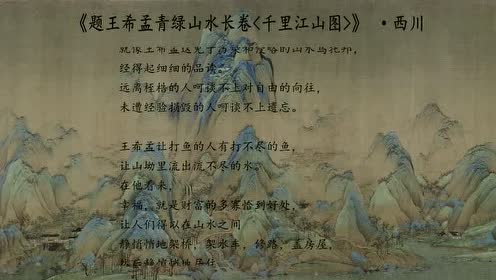 《题王希孟青绿山水长卷<千里江山图》 ·西川
经得起细细的品读
远离桎梏的人呵谈不上对自由的向往，
未遭经验损毁的人呵谈不上遗忘。
王希孟让打鱼的人有打不尽的鱼，
让山坳里流出流不尽的水。
在他看来，
幸福，就是财富的多寡恰到好处，
让人们得以在山水之间
静悄悄地架桥，架水车，修路，盖房屋，